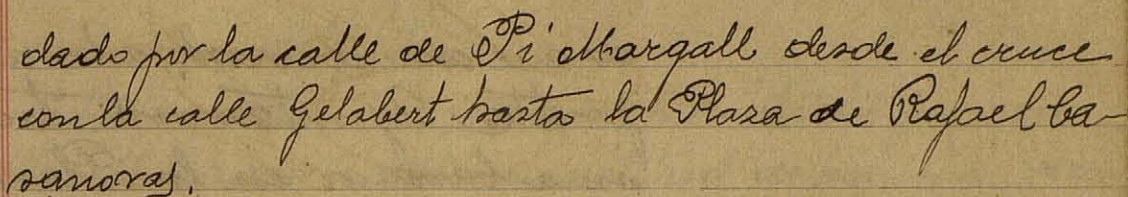 dado por la calle de Pi Margall desde el cruce
con la calle Gelabert hasta la Plaza de Rafael Ca-
sanovas.